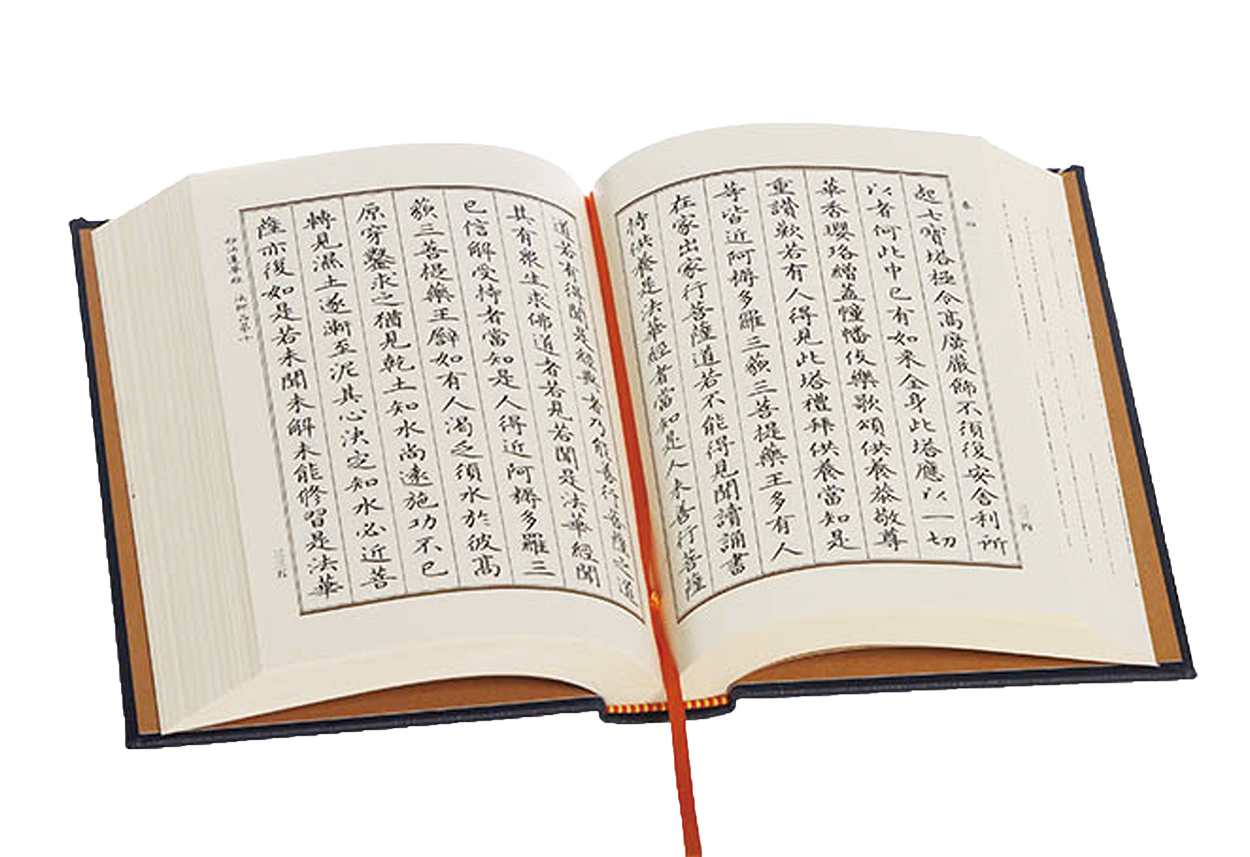 卷四
三三四
起七寶塔極令高廣嚴飾不須復安舍利所
以者何此中已有如來全身此塔應以一切
華香瓔珞繒蓋幢幡伎樂歌頌供養恭敬尊
重讚歎若有人得見此塔禮拜供養當知是
等皆近阿耨多羅三藐三菩提藥王多有人
在家出家行菩薩道若不能得見聞讀誦書
持供養是法華經者當知是人未善行菩薩
道若有得聞是經典者乃能善行菩薩之道
其有眾生求佛道者若見若聞是法華經聞
已信解受持者當知是人得近阿耨多羅三
藐三菩提藥王譬如有人渴乏須水於彼高
原穿鑿求之猶見乾土知水尚遠施功不已
轉見濕土遂漸至泥其心決定知水必近菩
薩亦復如是若未聞未解未能修習是法華
妙法蓮華經 法師品第十
三三五